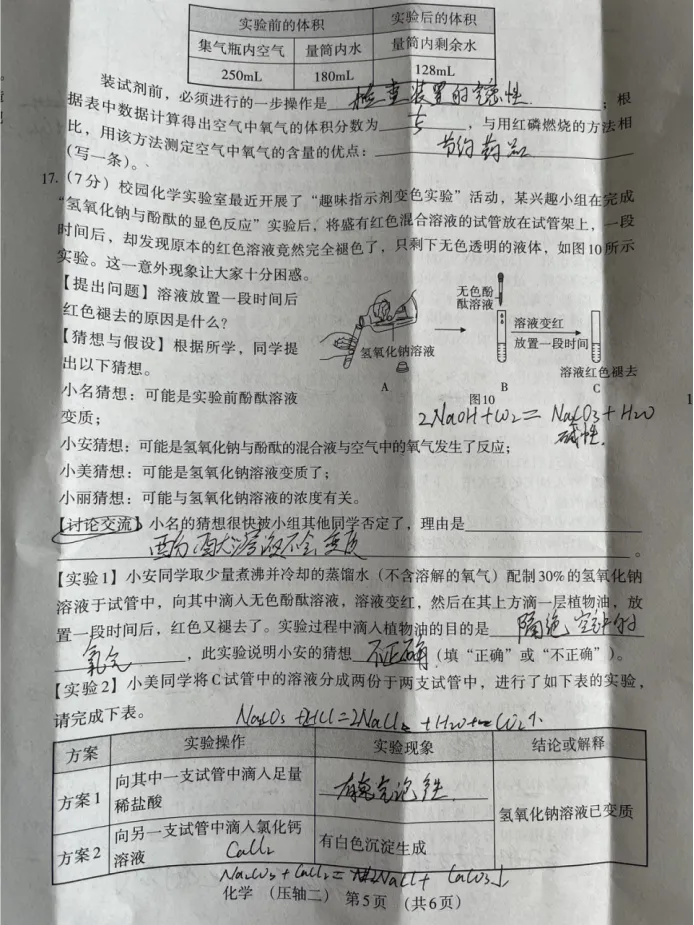 实验前的体积 实验后的体积
集气瓶内空气 量筒内水 量筒内剩余水
250mL 180mL 128mL
装试剂前，必须进行的一步操作是 检查装置的气密性 ；根
据表中数据计算得出空气中氧气的体积分数为 ，与用红磷燃烧的方法相
比，用该方法测定空气中氧气的含量的优点： 节约药品
（写一条）。
17.（7分）校园化学实验室最近开展了“趣味指示剂变色实验”活动，某兴趣小组在完成
“氢氧化钠与酚酞的显色反应”实验后，将盛有红色混合溶液的试管放在试管架上，一段
时间后，却发现原本的红色溶液竟然完全褪色了，只剩下无色透明的液体，如图10所示
实验。这一意外现象让大家十分困惑。
【提出问题】溶液放置一段时间后
红色褪去的原因是什么？
【猜想与假设】根据所学，同学提
出以下猜想。
小名猜想：可能是实验前酚酞溶液
变质；
无色酚
酞溶液
溶液变红
放置一段时间
氢氧化钠溶液
溶液红色褪去
A B C
图10
2NaOH+CO2=Na2CO3+H2O
碱性.
小安猜想：可能是氢氧化钠与酚酞的混合液与空气中的氧气发生了反应；
小美猜想：可能是氢氧化钠溶液变质了；
小丽猜想：可能与氢氧化钠溶液的浓度有关。
【讨论交流】小名的猜想很快被小组其他同学否定了，理由是
酚酞溶液不会变质 。
【实验1】小安同学取少量煮沸并冷却的蒸馏水（不含溶解的氧气）配制30%的氢氧化钠
溶液于试管中，向其中滴入无色酚酞溶液，溶液变红，然后在其上方滴一层植物油，放
置一段时间后，红色又褪去了。实验过程中滴入植物油的目的是 隔绝空气中的
氧气 ，此实验说明小安的猜想 不正确 （填“正确”或“不正确”）。
【实验2】小美同学将C试管中的溶液分成两份于两支试管中，进行了如下表的实验，
请完成下表。
Na2CO3+HCl=2NaCl+H2O+CO2↑
方案 实验操作 实验现象 结论或解释
方案1 向其中一支试管中滴入足量
稀盐酸 有氣泡产生 氢氧化钠溶液已变质
方案2 向另一支试管中滴入氯化钙
溶液 CaCl2 有白色沉淀生成
Na2CO3+CaCl2=2NaCl+CaCO3↓
化学 （压轴二） 第5页 （共6页）